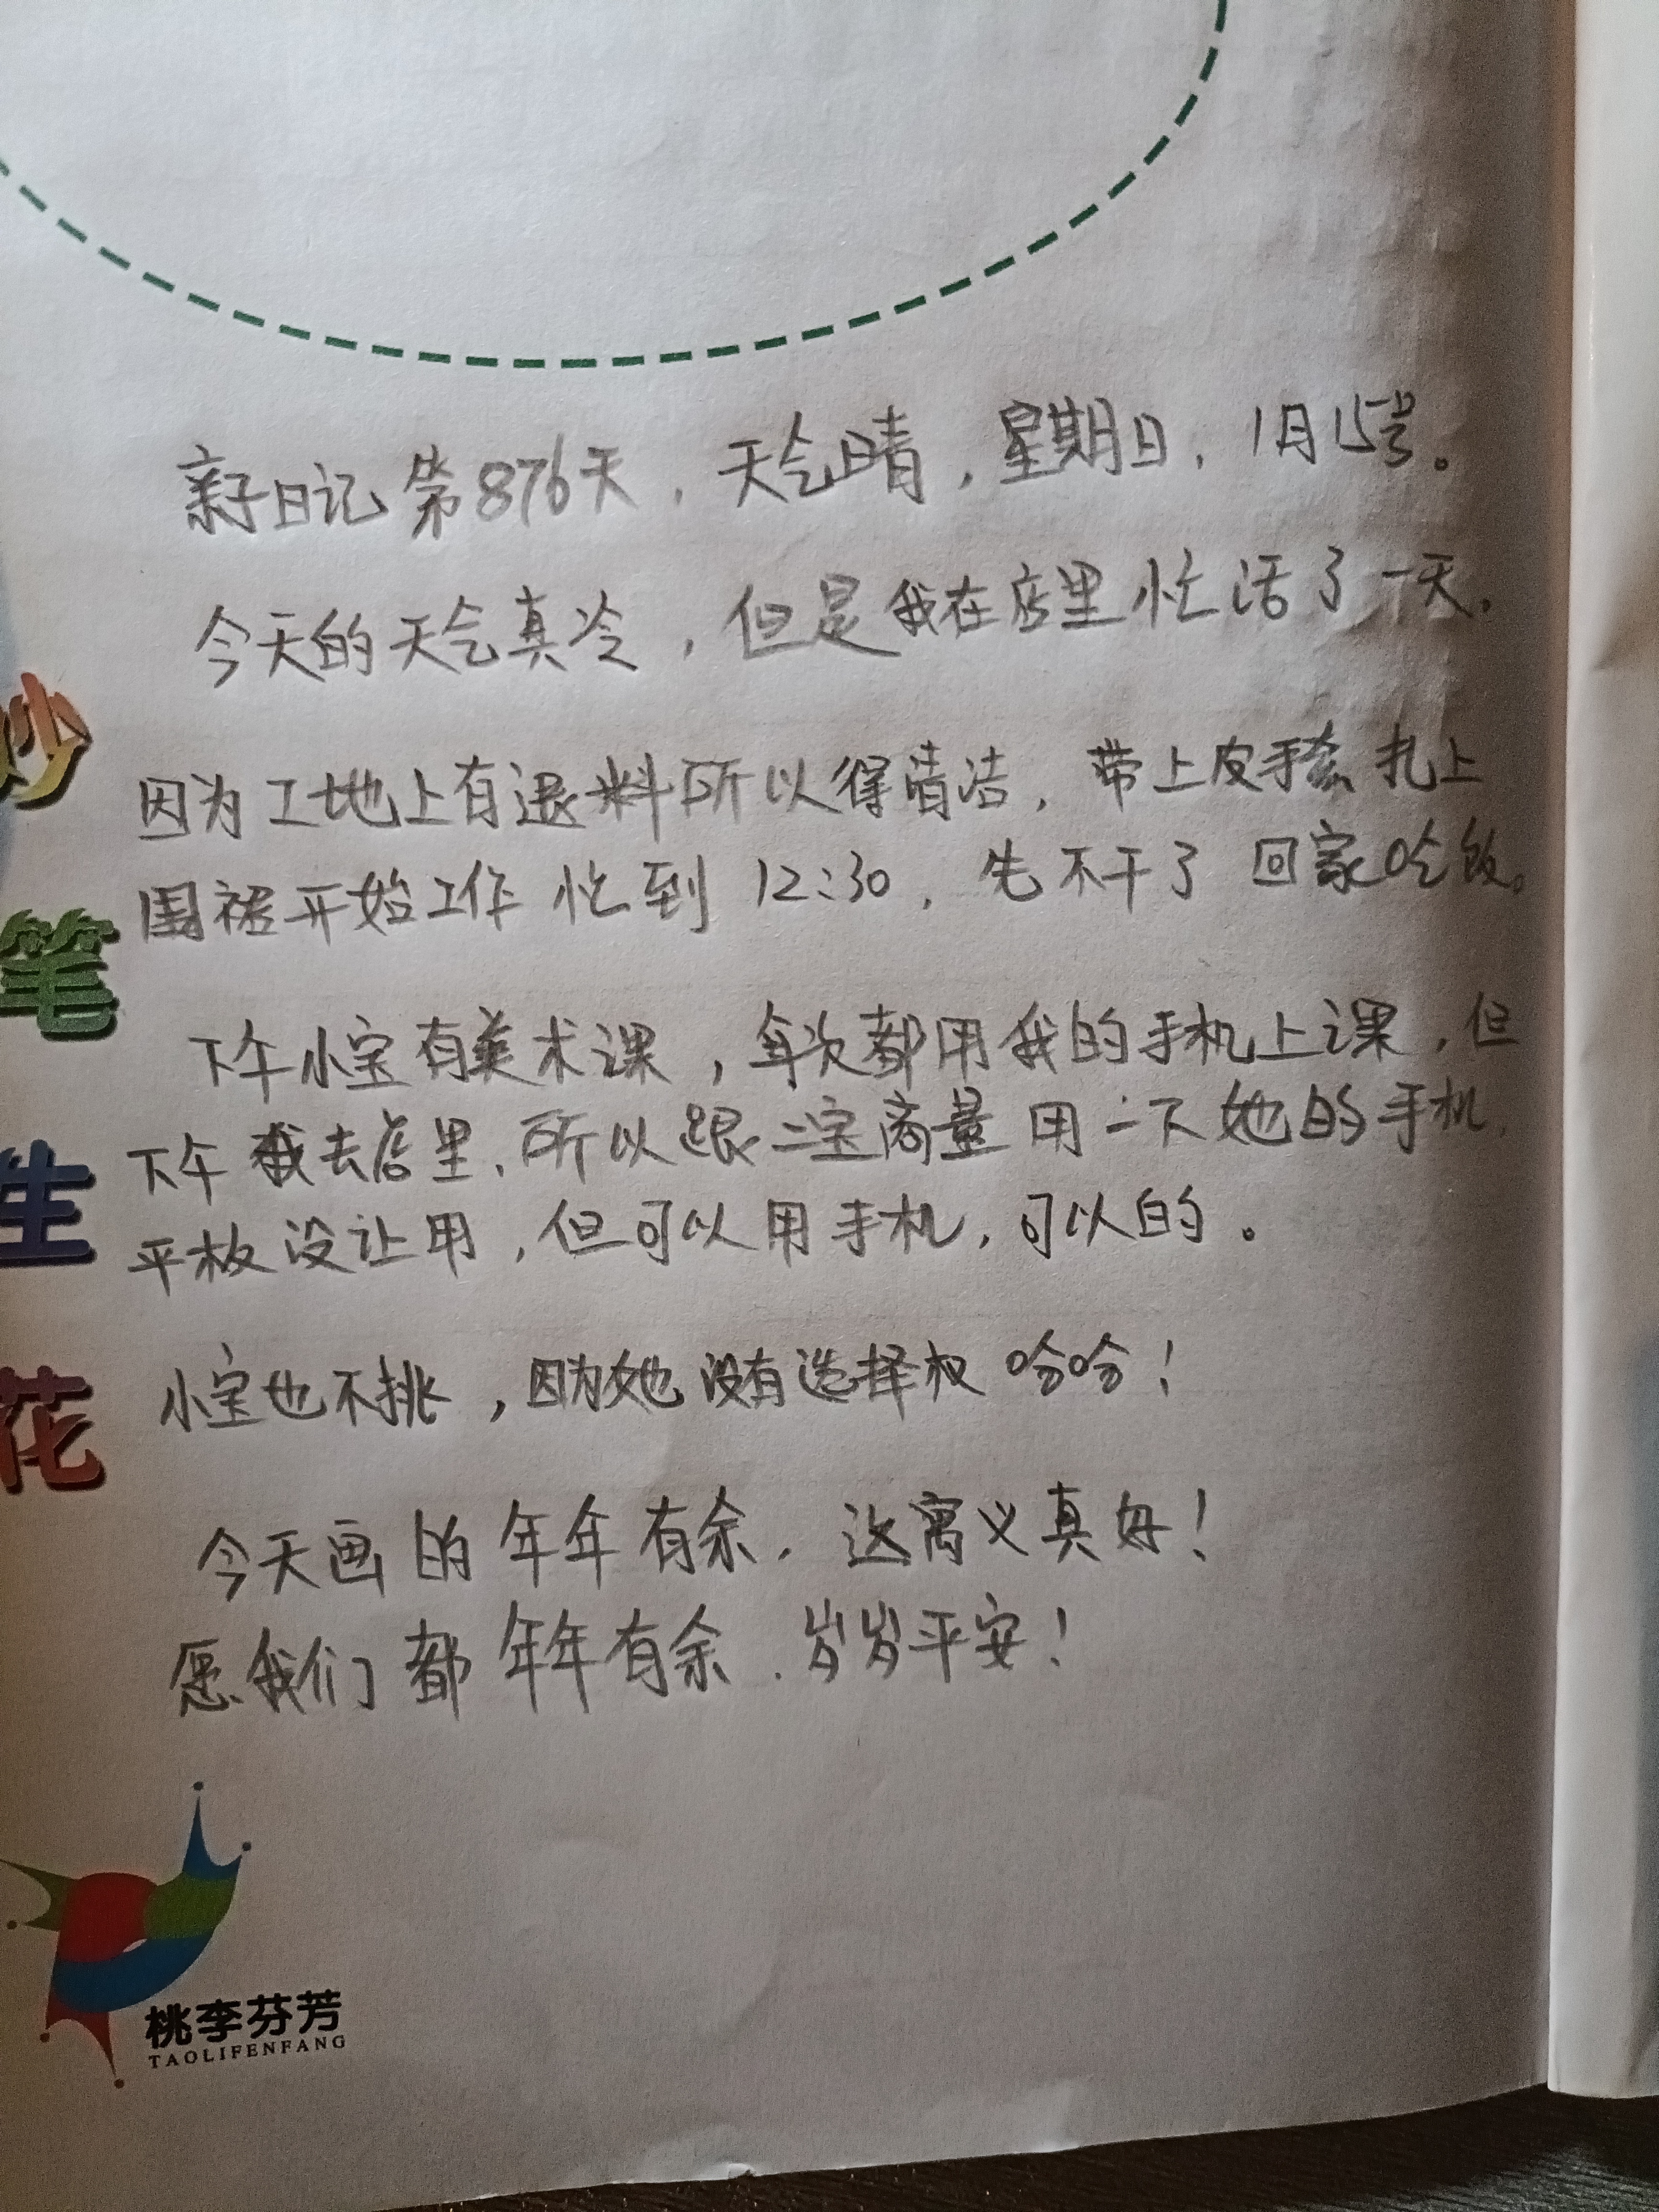 亲子日记 第876天，天气晴，星期日，1月15号。
今天的天气真冷，但是我在店里忙活了一天，
因为工地上有退料所以得清洁，带上皮手套 扎上
围裙开始工作 忙到 12:30，先不干了 回家吃饭。
下午小宝有美术课，每次都用我的手机上课，但
下午我去店里，所以跟二宝商量 用一下她的手机，
平板没让用，但可以用手机，可以的。
小宝也不挑，因为她没有选择权 哈哈！
今天画的年年有余，这寓义真好！
愿我们都年年有余，岁岁平安！
妙
笔
生
花
桃李芬芳
TAOLIFENFANG